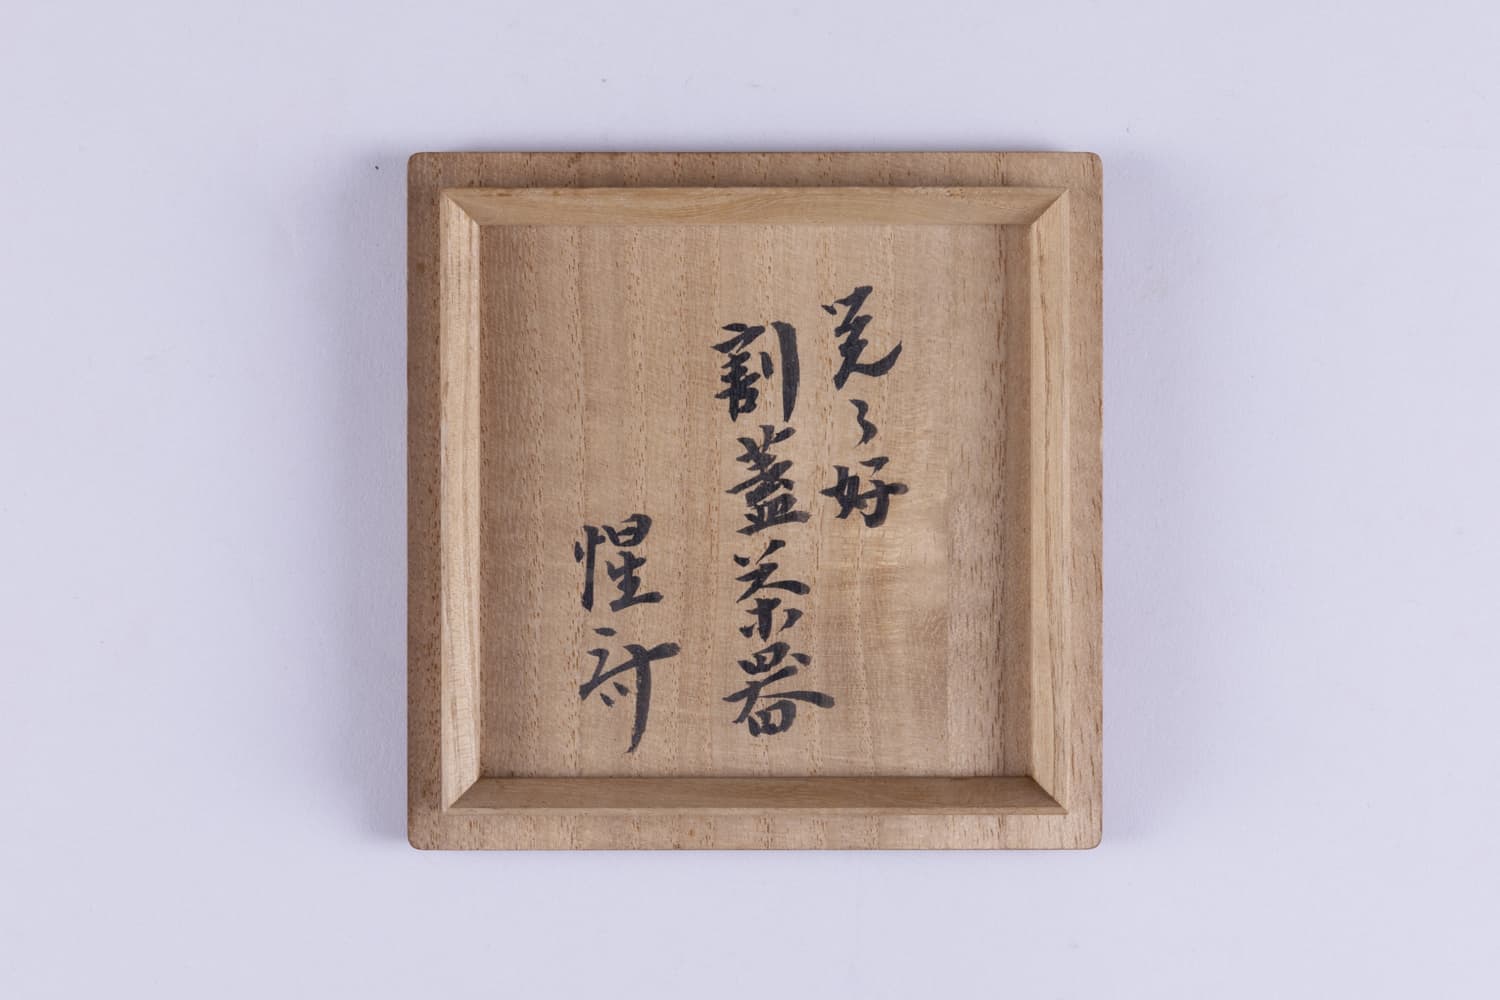 覚々好
割蓋茶器
惺斎